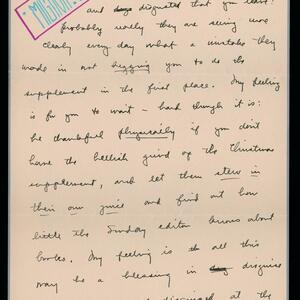 and disgusted that you leave!
Probably really they are seeing more
clearly every day what a mistake they
made in not begging you to do the
supplement in the first place. My feeling
is for you to wait - hard though it is:
be thankful physically if you don't
have the hellish grind of the Christmas
supplement, and let them stew in
their own juice and find out how
little the Sunday editor knows about
books. My feeling is th all this
may be a blessing in disguise
at the